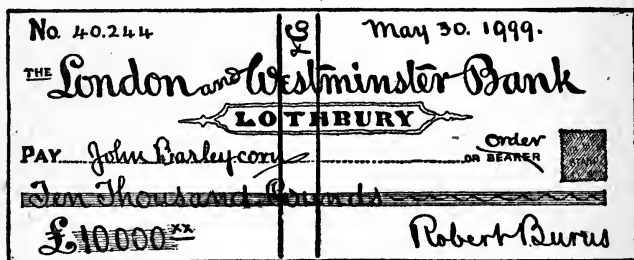 No. 40.244 & Co May 30. 1999.
THE London and Westminster Bank
LOTHBURY
PAY John Barleycorn Order
OR BEARER
Ten Thousand Pounds
£10.000 xx Robert Burns